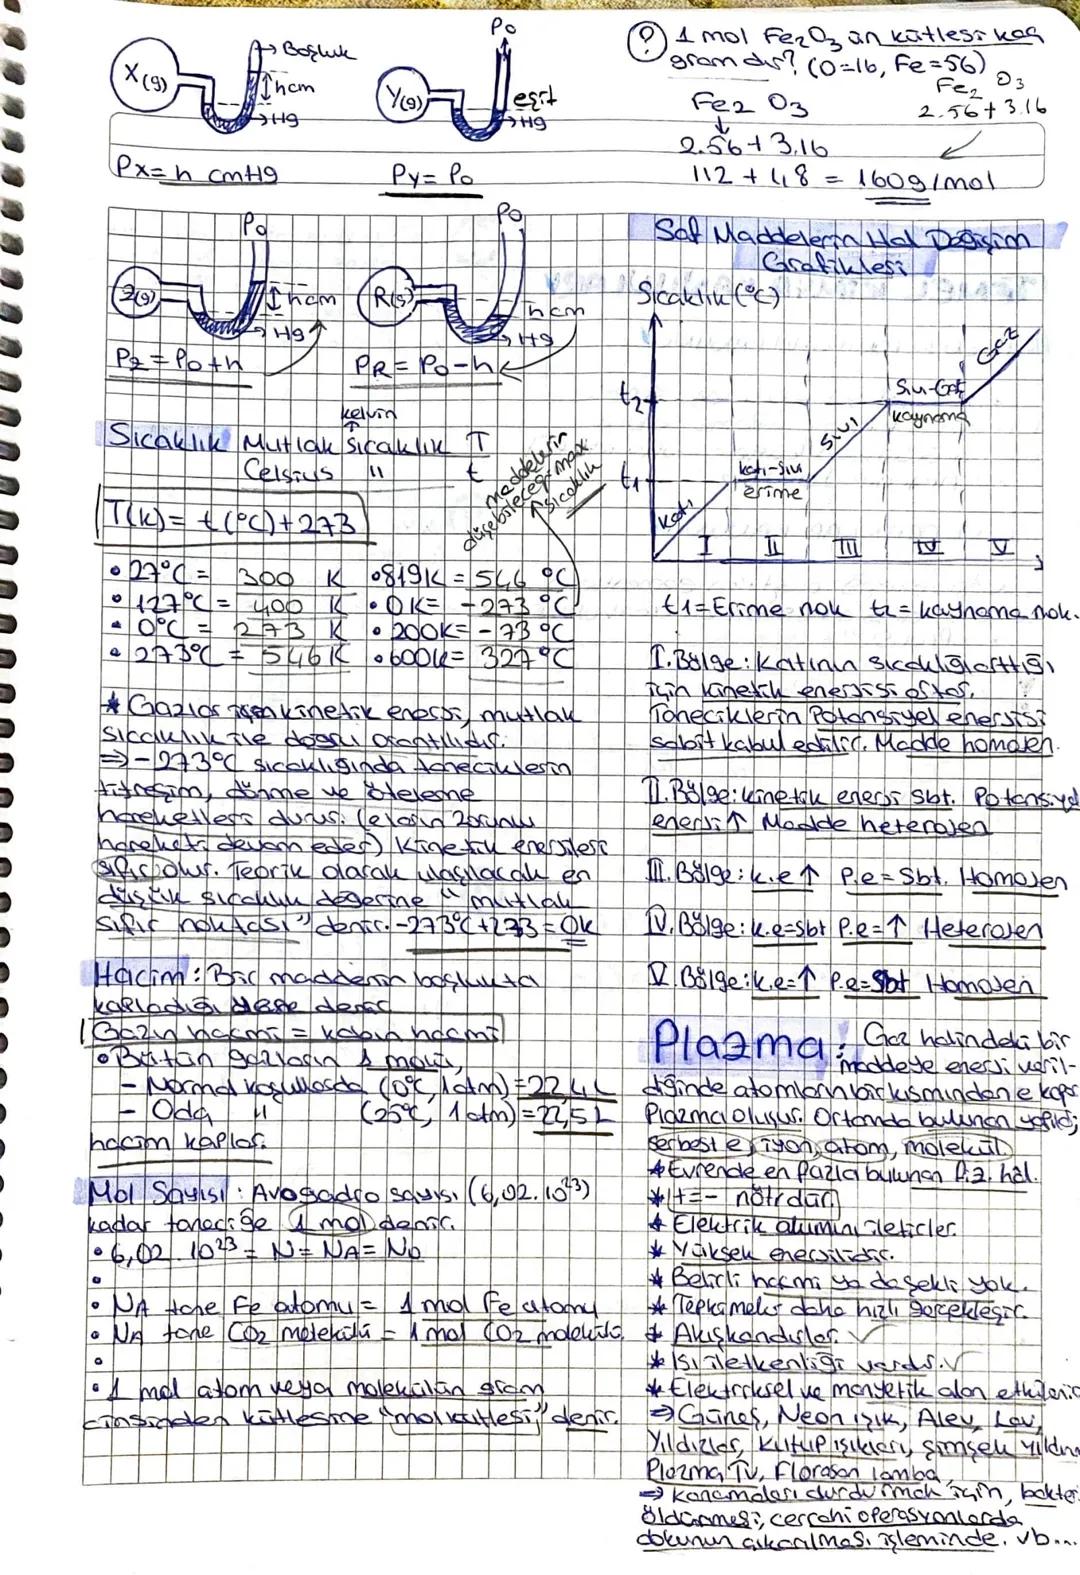 X(g)
Boşluk
hcm
Hg
Px= h cmHg
Po
Y(g)
eşit
Hg
Py= Po
? 1 mol Fe2O3 ün kütlesi kaç
gramdır? (O=16, Fe=56)
Fe2 O3
2.56+3.16
Fe2 O3
2.56+3.16
112 + 48 = 160g/mol
Po
Z(g)
hcm
Hg
Pz= Po+h
Po
R(g)
hcm
Hg
PR= Po-h
kelvin
Sıcaklık Mutlak Sıcaklık T
Celsius " t
maddelerin
düşebileceği max
sıcaklık
T(K)= t(°C)+273
• 27°C = 300 K • 819K = 546 °C
• 127°C = 400 K • 0K= -273 °C
• 0°C = 273 K • 200K= -73 °C
• 273°C = 546 K • 600K= 327 °C
* Gazlar için kinetik enerji, mutlak
sıcaklık ile doğru orantılıdır.
⇒ -273°C sıcaklığında taneciklerin
titreşim, dönme ve öteleme
hareketleri durur. (elektron zorunlu
hareketi devam eder) Kinetik enerjileri
sıfır olur. Teorik olarak ulaşılacak en
düşük sıcaklık değerine "mutlak
sıfır noktası" denir. -273°C+273=0K
Hacim: Bir maddenin boşlukta
kapladığı yere denir
Gazın hacmi = kabın hacmi
• Bütün gazların 1 molü,
- Normal koşullarda (0°C, 1atm)=22,4L
- Oda " (25°C, 1atm)=22,5L
hacim kaplar.
Mol Sayısı: Avogadro sayısı (6,02.10^23)
kadar taneciğe 1 mol denir.
• 6,02.10^23 = N= NA= No
• NA tane Fe atomu = 1 mol Fe atomu
• NA tane CO2 molekülü = 1 mol CO2 molekülü
• 1 mol atom veya molekülün gram
cinsinden kütlesine "mol kütlesi" denir.
Saf Maddelerin Hal Değişim
Grafikleri
Sıcaklık (°C)
t2
t1
Katı
katı-sıvı
erime
Sıvı
Sıvı-Gaz
kaynama
Gaz
I II III IV V
t1=Erime nok t2= kaynama nok.
I.Bölge: Katının sıcaklığı arttığı
için kinetik enerjisi artar.
Taneciklerin Potansiyel enerjisi
sabit kabul edilir. Madde homojen.
II.Bölge: kinetik enerji sbt. Potansiyel
enerji↑ Madde heterojen
III.Bölge: k.e↑ P.e= Sbt. Homojen
IV.Bölge: k.e=sbt P.e=↑ Heterojen
V.Bölge: k.e=↑ P.e=Sbt Homojen
Plazma: Gaz halindeki bir
maddeye enerji veril-
diğinde atomların bir kısmından e kopar
Plazma oluşur. Ortamda bulunan
serbest e, iyon, atom, molekül
* Evrende en fazla bulunan fiz. hal.
* +=- nötrdür
* Elektrik akımını iletirler.
* Yüksek enerjilidir.
* Belirli hacmi ya da şekli yok.
* Tepkimeler daha hızlı gerçekleşir.
* Akışkandırlar. ✓
* Isı iletkenliği vardır. ✓
* Elektriksel ve manyetik alan
⇒ Güneş, Neon ışık, Alev, Lav,
Yıldızlar, Kutup ışıkları, şimşek
Plazma Tv, Florasan lamba
⇒ kanamaları durdurmak için,
öldürmesi, cerrahi operasyonlarda
dokunun çıkarılması işleminde. vb...